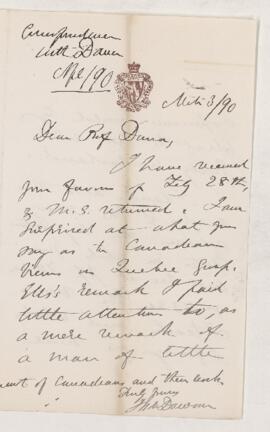 Correspondence
with Dana
Mch 3/90
Dear Prof Dana,
I have received
your favour of Feb 28th,
& M.S. returned. I am
surprised at what you
say as to Canadian
views on Quebec Group.
Ells's remark I paid
little attention to, as
a mere remark of
a man of little
of Canadians and their work
Truly yours
Dawson